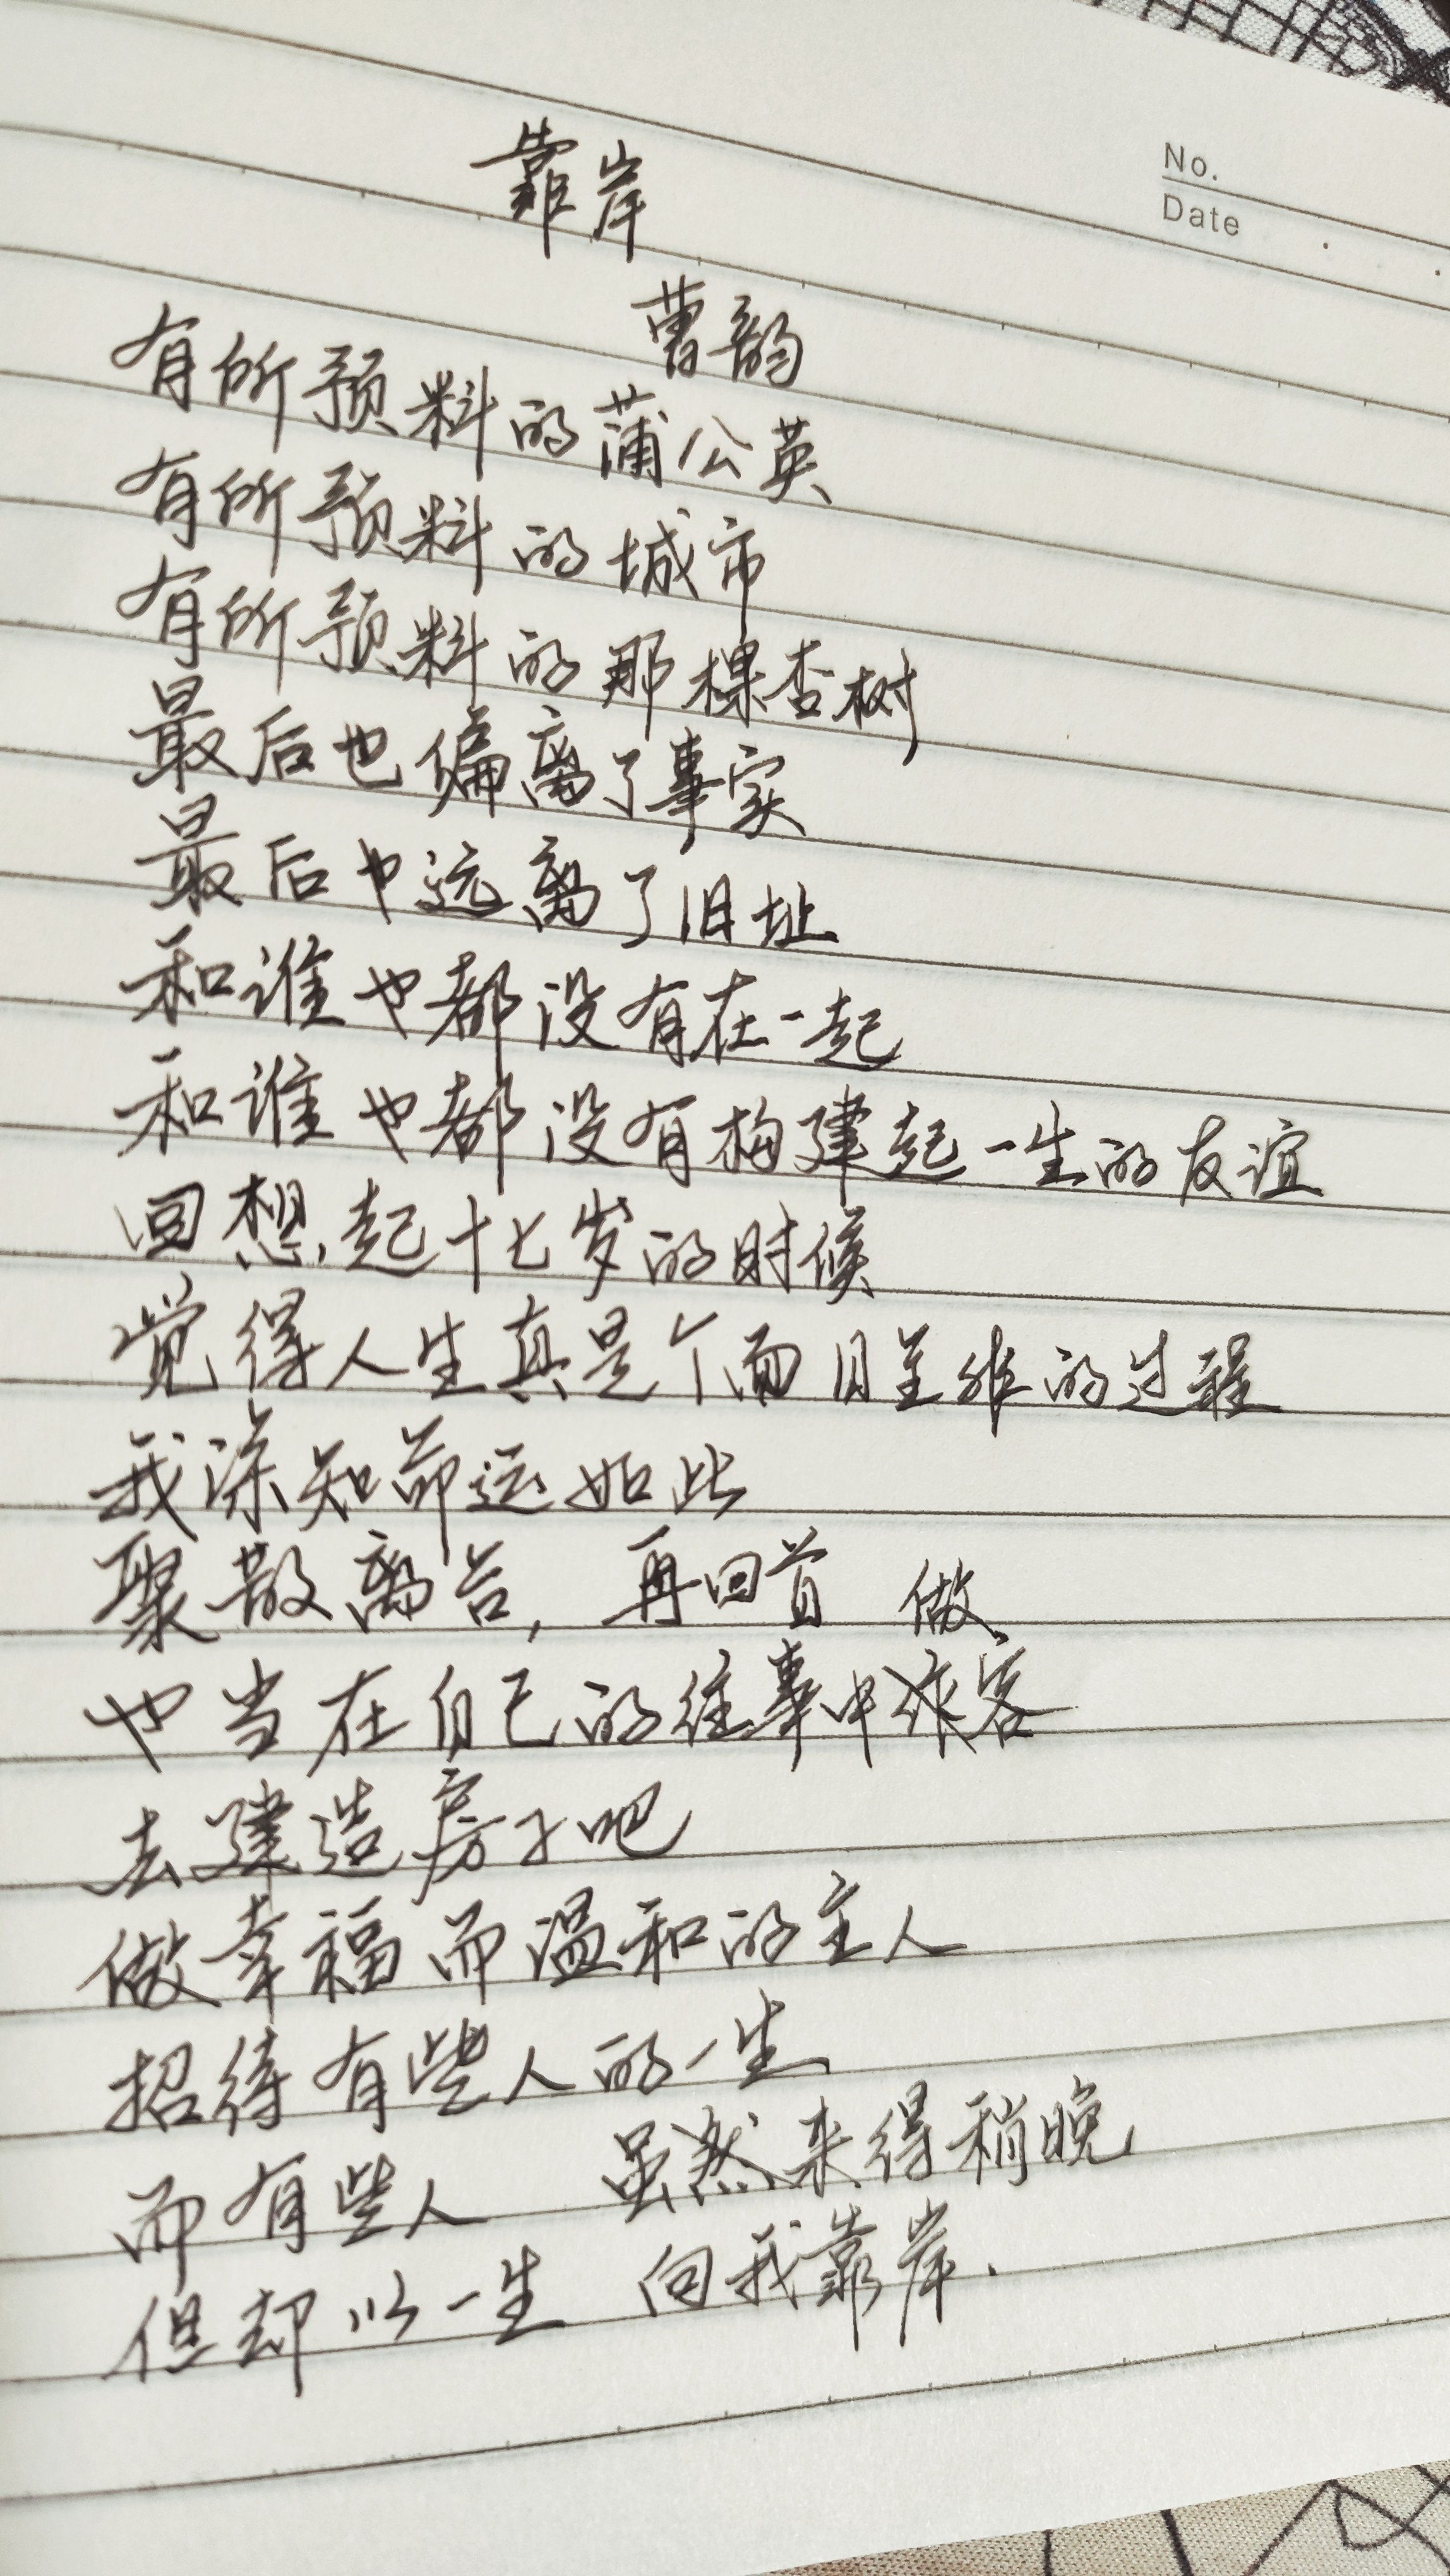 No.
Date
靠岸
曹韵
有所预料的蒲公英
有所预料的城市
有所预料的那棵杏树
最后也偏离了事实
最后也远离了旧址
和谁也都没有在一起
和谁也都没有构建起一生的友谊
回想起十七岁的时候
觉得人生真是个面目全非的过程
我深知命运如此
聚散离合,再回首 做
也当在自己的往事中做客
去建造房子吧
做幸福而温和的主人
招待有些人的一生
而有些人 虽然来得稍晚
但却以一生 向我靠岸.